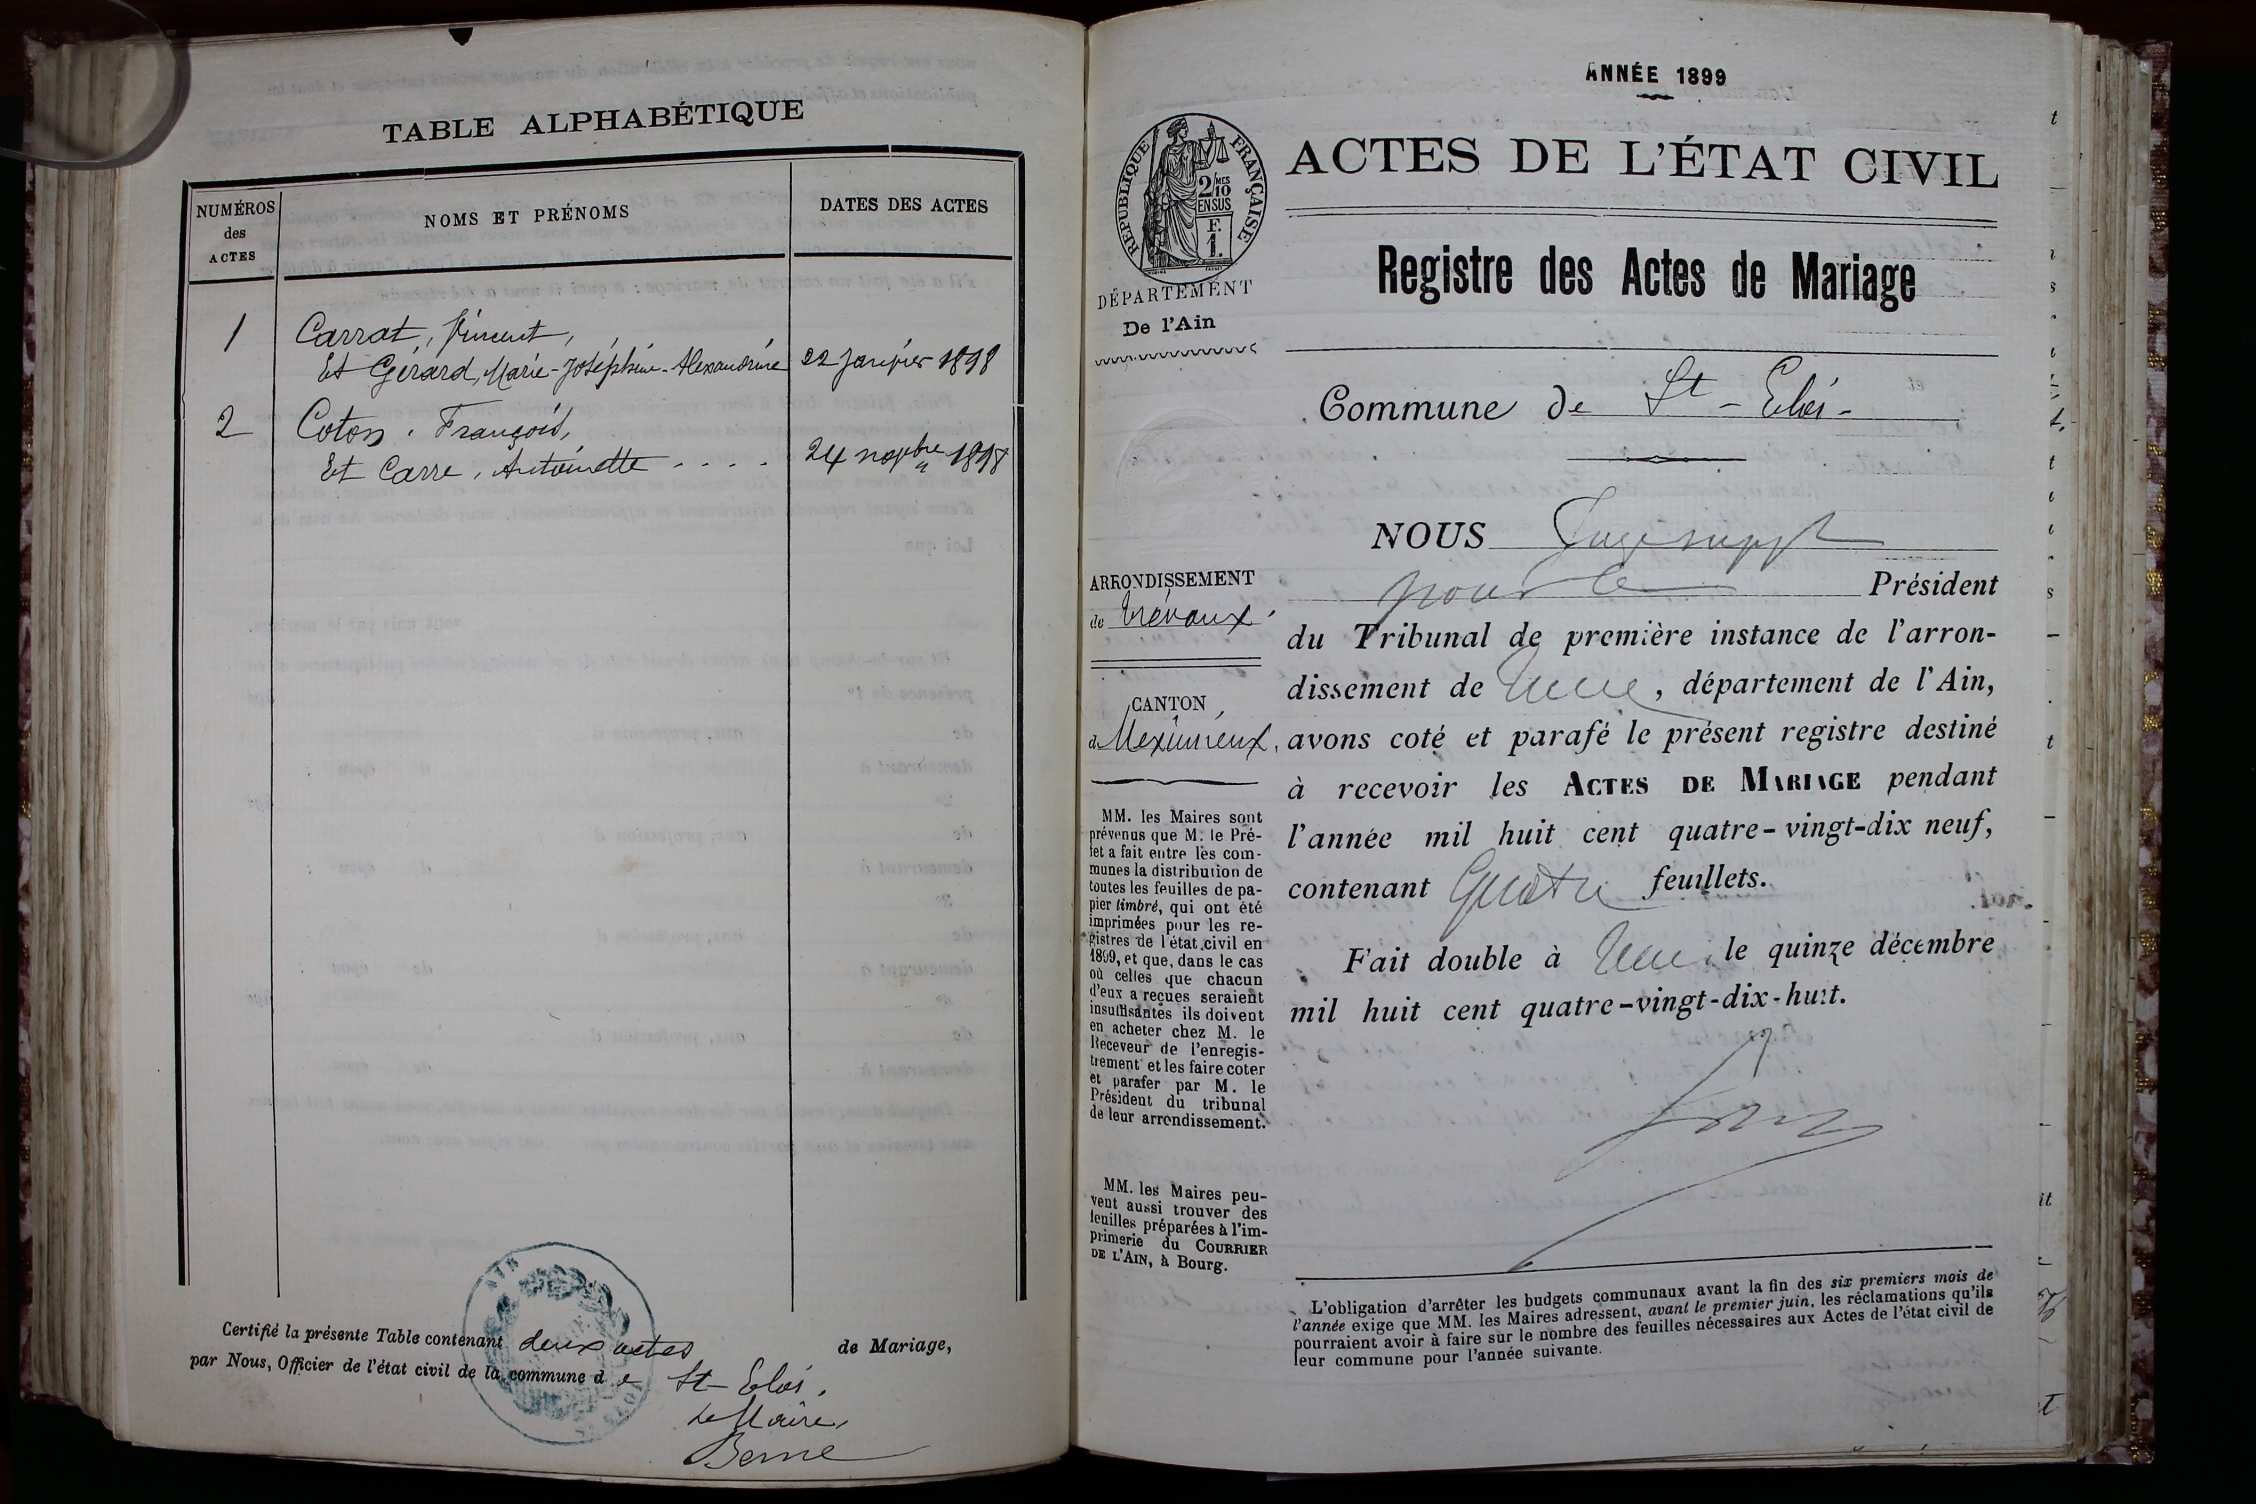 TABLE ALPHABÉTIQUE
NUMÉROS
des
ACTES
NOMS ET PRÉNOMS
DATES DES ACTES
1
Carrat, Vincent,
Et Gérard, Marie-Joséphine-Alexandrine
22 janvier 1898
2
Coton, François,
Et Carre, Antoinette . . . .
24 novbre 1898
Certifié la présente Table contenant deux actes de Mariage,
par Nous, Officier de l'état civil de la commune d e St-Eloi.
Le Maire,
Berne
ANNÉE 1899
RÉPUBLIQUE FRANÇAISE
2/MES
10
EN SUS
F.
1.
DÉPARTEMENT
De l'Ain
ACTES DE L'ÉTAT CIVIL
Registre des Actes de Mariage
Commune de St-Eloi-
ARRONDISSEMENT
de Trévoux
CANTON
de Meximieux,
MM. les Maires sont
prévenus que M. le Pré-
fet a fait entre les com-
munes la distribution de
toutes les feuilles de pa-
pier timbré, qui ont été
imprimées pour les re-
gistres de l'état civil en
1899, et que, dans le cas
où celles que chacun
d'eux a reçues seraient
insuffisantes ils doivent
en acheter chez M. le
Receveur de l'enregis-
trement et les faire coter
et parafer par M. le
Président du tribunal
de leur arrondissement.
MM. les Maires peu-
vent aussi trouver des
feuilles préparées à l'im-
primerie du COURRIER
DE L'AIN, à Bourg.
NOUS Juge suppt
pour le Président
du Tribunal de première instance de l'arron-
dissement de , département de l'Ain,
avons coté et parafé le présent registre destiné
à recevoir les ACTES DE MARIAGE pendant
l'année mil huit cent quatre-vingt-dix neuf,
contenant Quatre feuillets.
Fait double à le quinze décembre
mil huit cent quatre-vingt-dix-huit.
L'obligation d'arrêter les budgets communaux avant la fin des six premiers mois de
l'année exige que MM. les Maires adressent, avant le premier juin, les réclamations qu'ils
pourraient avoir à faire sur le nombre des feuilles nécessaires aux Actes de l'état civil de
leur commune pour l'année suivante.